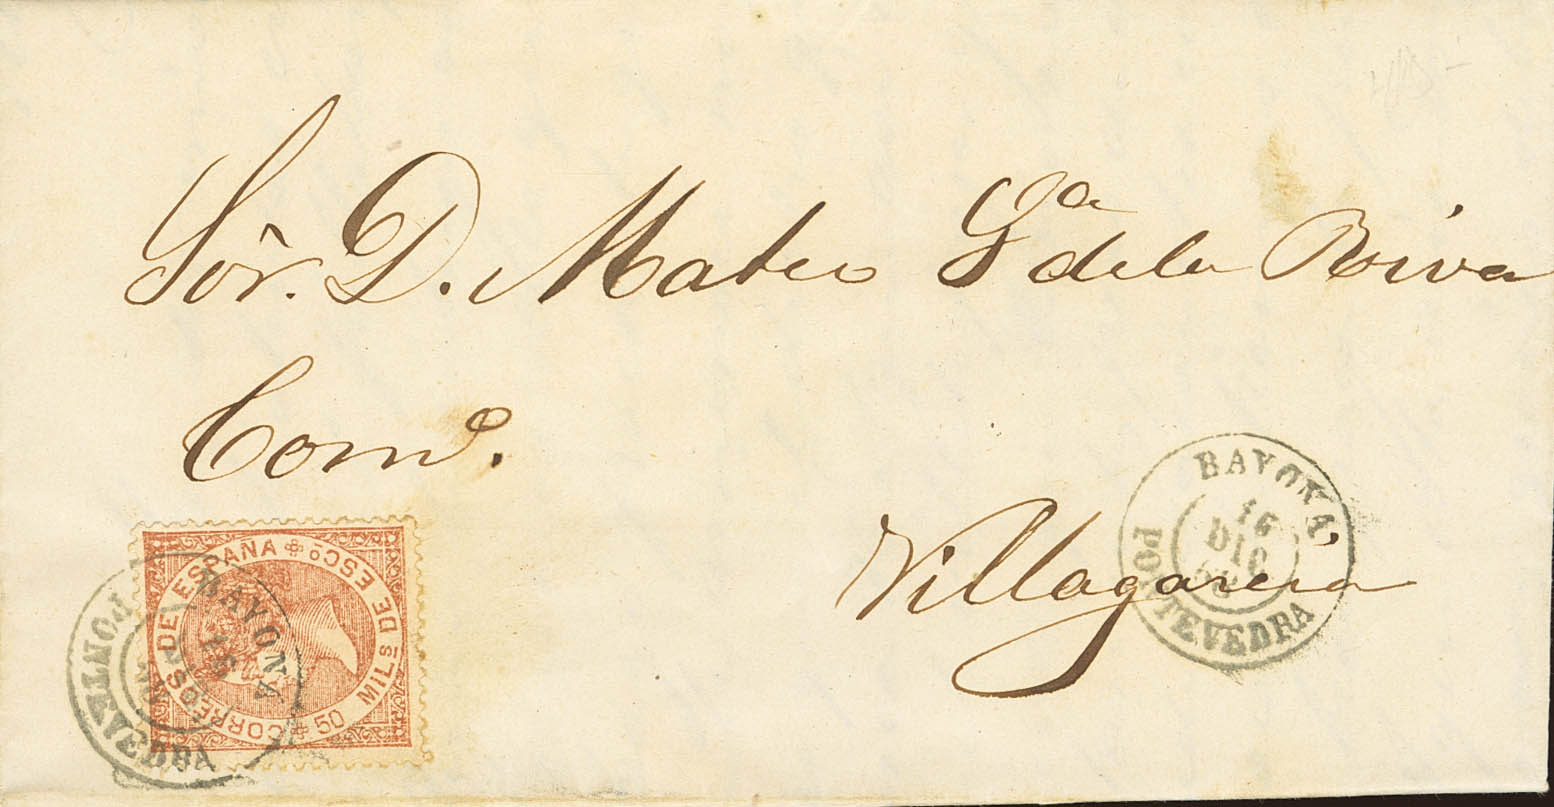 Sör. D. Mateo Gª de la Riva
Comº.
Villagarcia
BAYONA
16
DIC
PONTEVEDRA
CORREOS DE ESPAÑA
50 MILS DE ESCO
BAYONA
16
PONTEVEDRA